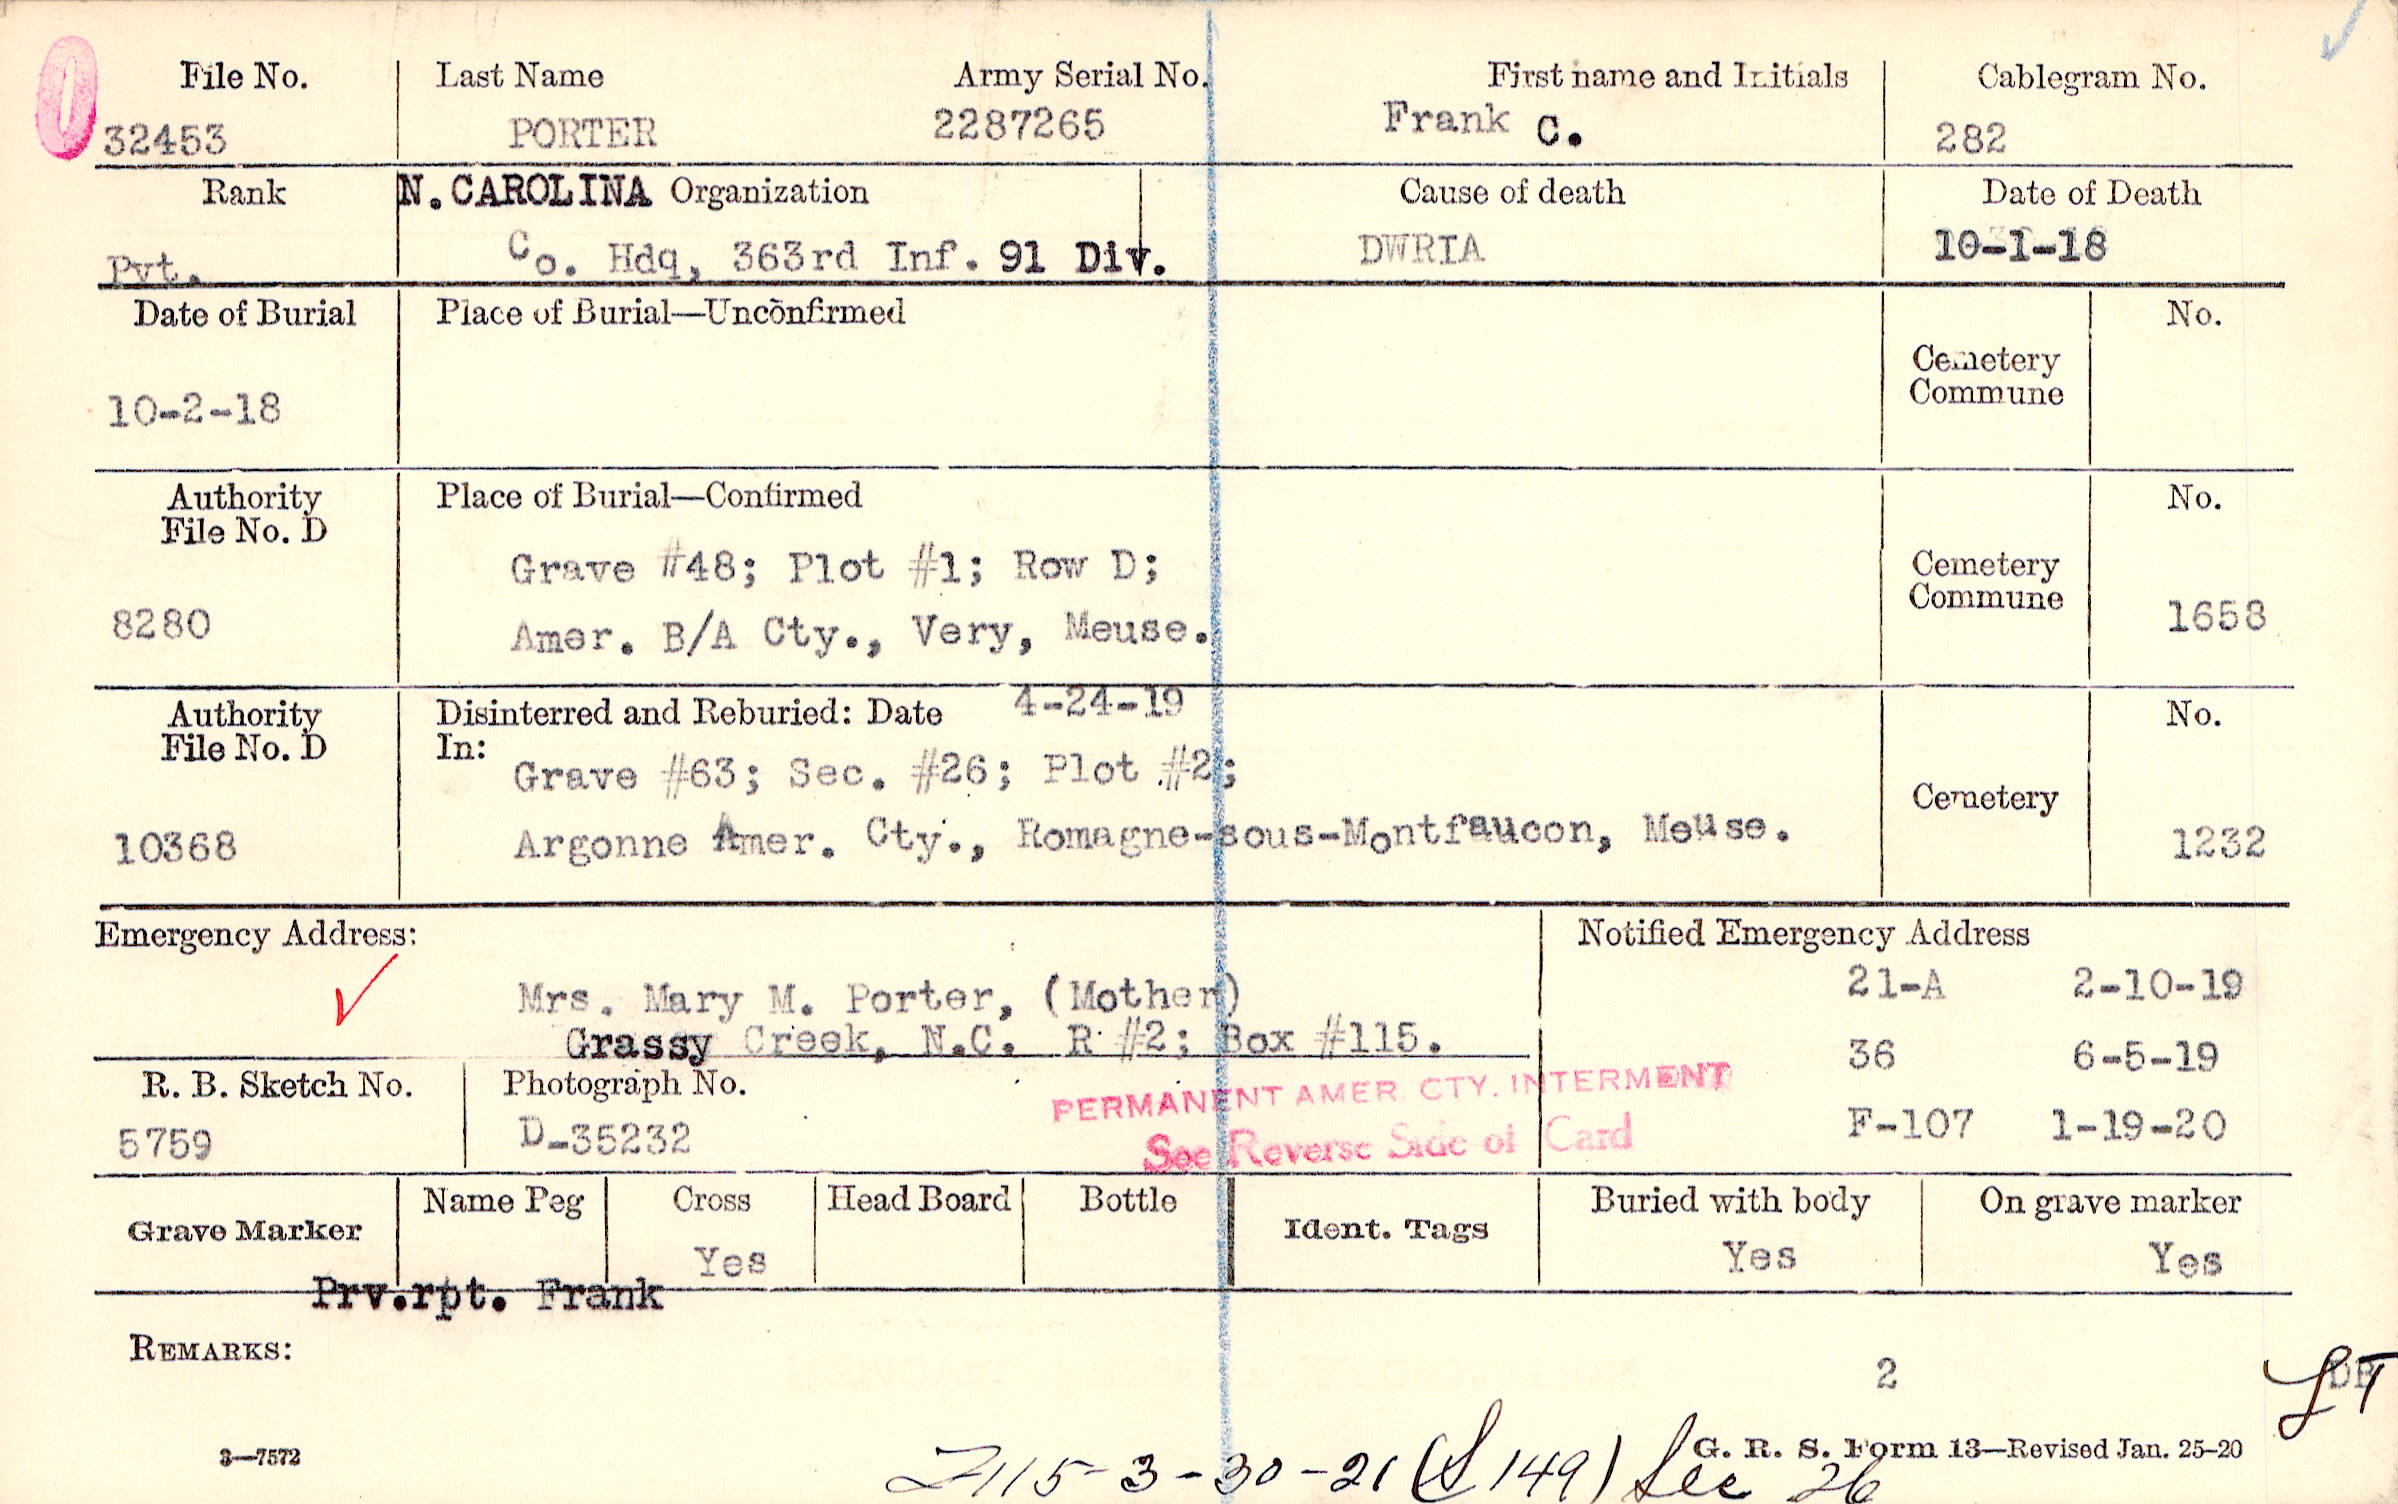 File No. Last Name Army Serial No. First name and Initials Cablegram No.
32453 PORTER 2287265 Frank C. 282
Rank N. CAROLINA Organization Cause of death Date of Death
Pvt. Co. Hdq, 363rd Inf. 91 Div. DWRIA 10-1-18
Date of Burial Place of Burial—Unconfirmed No.
Cemetery
Commune
10-2-18
Authority Place of Burial—Confirmed No.
File No. D
Grave #48; Plot #1; Row D; Cemetery
Commune
8280 Amer. B/A Cty., Very, Meuse. 1658
Authority Disinterred and Reburied: Date 4-24-19 No.
File No. D In:
Grave #63; Sec. #26; Plot #2; Cemetery
10368 Argonne Amer. Cty., Romagne-sous-Montfaucon, Meuse. 1232
Emergency Address: Notified Emergency Address
Mrs. Mary M. Porter, (Mother) 21-A 2-10-19
Grassy Creek, N.C. R #2; Box #115. 36 6-5-19
R. B. Sketch No. Photograph No. PERMANENT AMER. CTY. INTERMENT
5759 D-35232 See Reverse Side of Card F-107 1-19-20
Grave Marker Name Peg Cross Head Board Bottle Ident. Tags Buried with body On grave marker
Yes Yes Yes
Prv.rpt. Frank
REMARKS:
2
3—7572 G. R. S. Form 13—Revised Jan. 25-20
3-30-21 (S 149) Sec 26